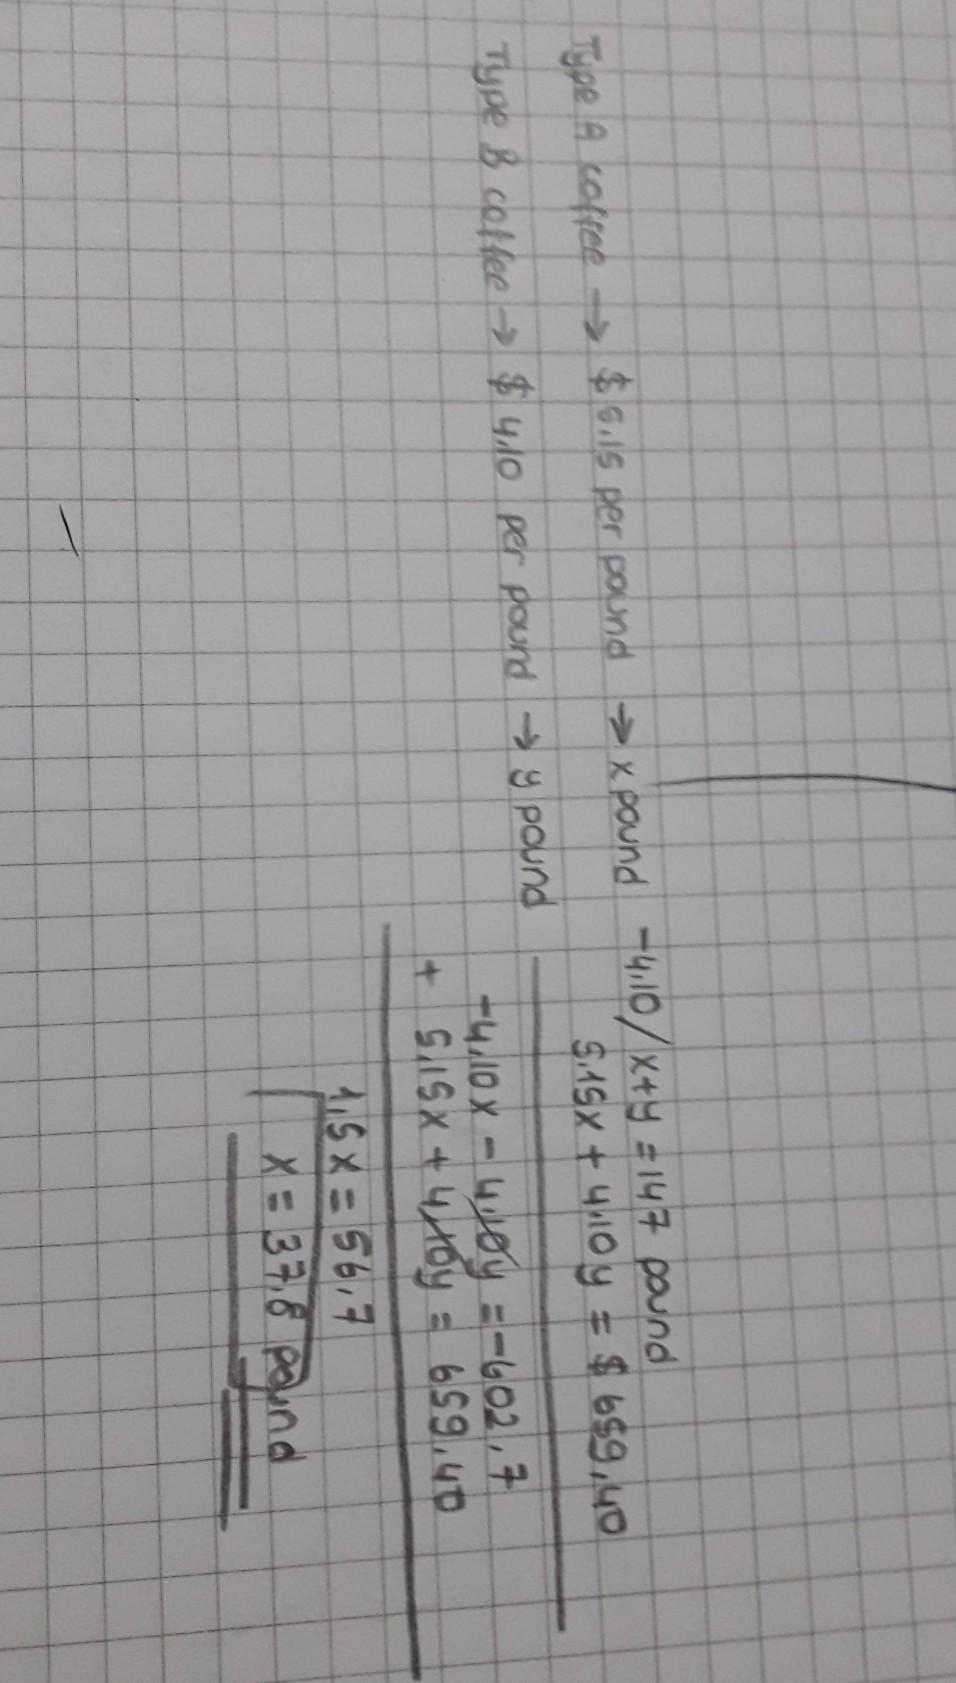 Type A coffee → $ 5.15 per pound → x pound
Type B coffee → $ 4.10 per pound → y pound
-4.10/ x+y = 147 pound
5.15x + 4.10y = $ 659.40
-4.10x - 4.10y = -602.7
+ 5.15x + 4.10y = 659.40
1.5x = 56.7
x = 37.8 pound